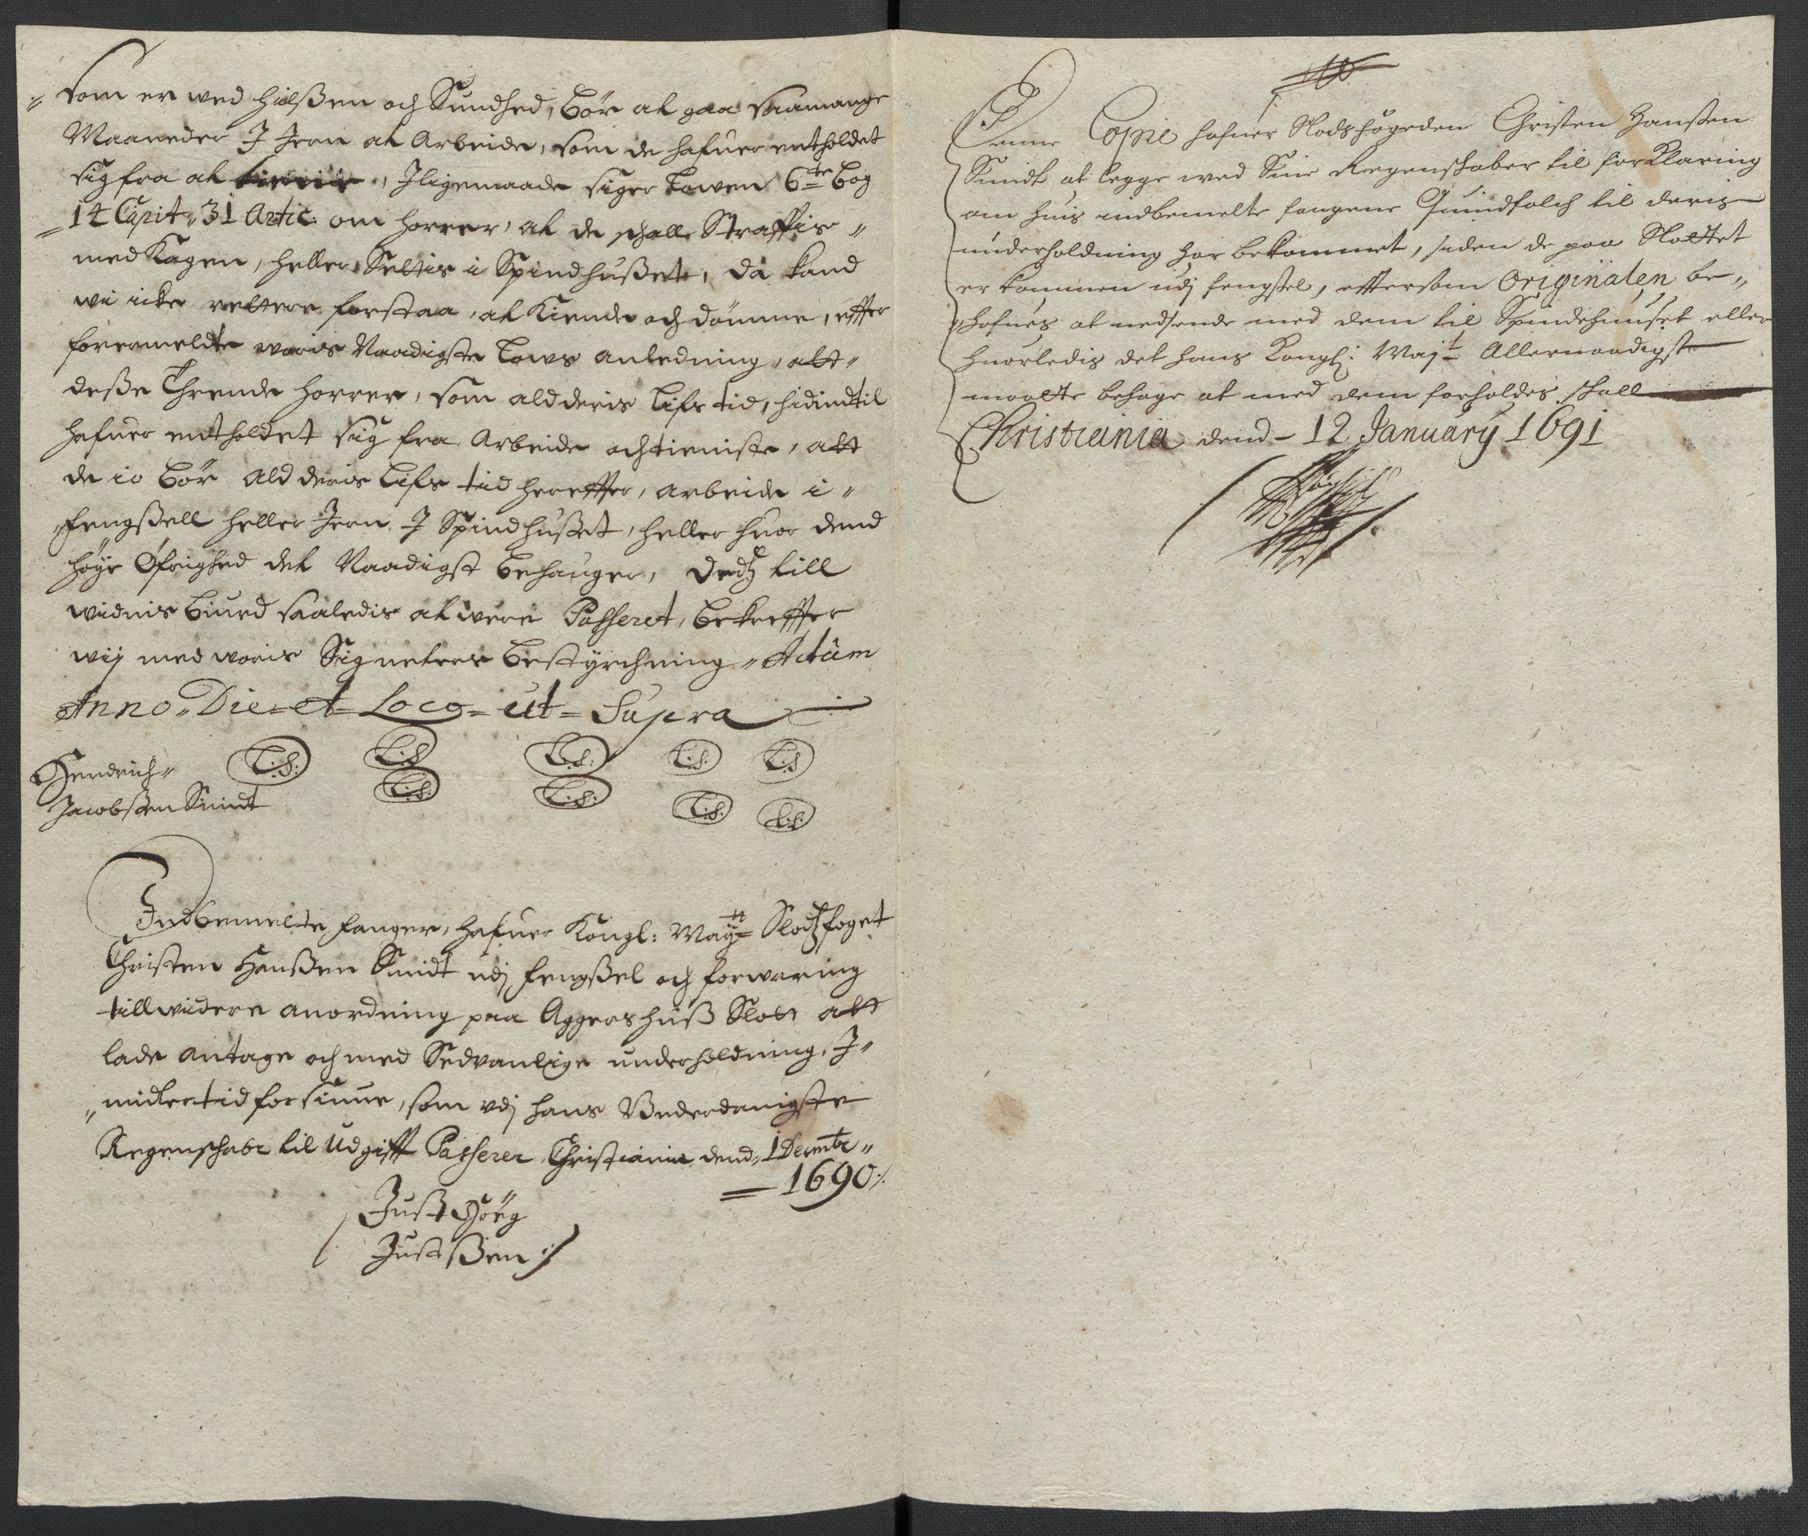 som er wed hielßen och Sundhed, bør at gaa saamange
Maaneder J Jern at Arbeide, som de hafuer entholdet
sig fra at tienne, Jligemaade siger Lowen 6te bog
14 Capit: 31 Artic om horrer, at de schalle Straffis
med Kagen, heller Settis i Spindhußet, da kand
wi icke rettere forstaa, at Kiende och dømme, effter
forermeldte woris Naadigste Lows anledning, att
deße Thrende horrer, som ald deris Lifs tid, hidindtil
hafuer entholdet sig fra Arbeide och tieniste, att
de io bør ald deris Lifs tid hereffter, arbeide i
fengßell heller Jern J Spindhußet, heller huor dend
høye Øfrighed det Naadigst behauger, Dedtz till
widnis biurd saaledis at were Passeret, bekreffter
wij med woris Signeters bestyrchning, Actum
Anno Die et Loco ut Supra
Hendrich L:S: L:S L:S: L:S: L:S
Jacobßen Smidt L:S: L:S: L:S: L:S:
Jndbemelte fanger, hafuer Kongl: Maytt Slodtzfoget
Christen Hanßen Smidt udj fengßel och forwaring
till widere anordning paa Aggershuß Slott att
lade antage och med Sedvanlige underholdning, J
midlertid forsiune, som vdj hans Vnderdanigste
Regenschabr til Udgifft Passerer Christiania dend 1 Decembr
1690
Just Høeg
Justßen
Denne Copie hafuer Slodshøgeden Christen Hanßen
Smidt at legge wed Sine Regenskaber til forklaring
om huis indbemelte fangene Quindfolch til deris
underholdning har bekommet, siden de paa Slottet
er kommen udj fengßel, efftersom Originalen be-
hofues at nedsende med dem til Spindehuuset eller
huorledis det hans Kongl: Mayt Allernaadigst
maatte behage at med dem forholdes skall
Christiania dend 12 January 1691